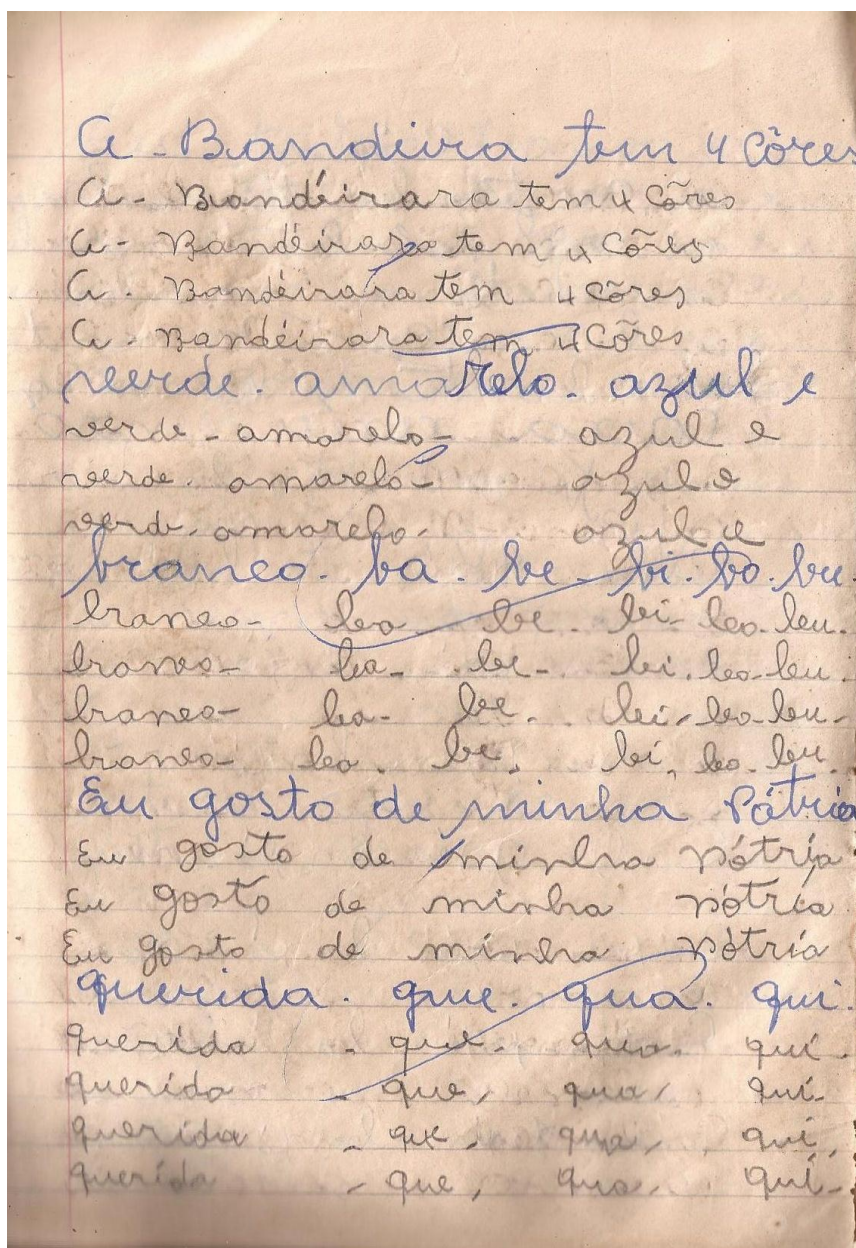 A - Bandeira tem 4 Côres
A - Bandéirara tem 4 Cões
A - Bandéirara tem 4 Cões
A . Bandéirara tem 4 cões
A . Bandéirara tem 4 Cões
verde . amarelo . azul e
verde - amarelo - azul e
verde . amarelo - azul e
verde . amarelo . azul e
branco . ba . be . bi . bo . bu .
branco - ba - be - bi - bo - bu .
branco - ba - be - bi . bo - bu .
branco - ba - be . bi - bo - bu -
branco - ba . be . bi . bo . bu .
Eu gosto de minha Pátria
Eu gosto de minha Pátria .
Eu gosto de minha Pátria
Eu gosto de minha Pátria
querida . que . qua . qui .
querida - que - qua . qui -
querida - que , qua , qui -
querida - que , qua , qui ,
querida - que , qua , qui -